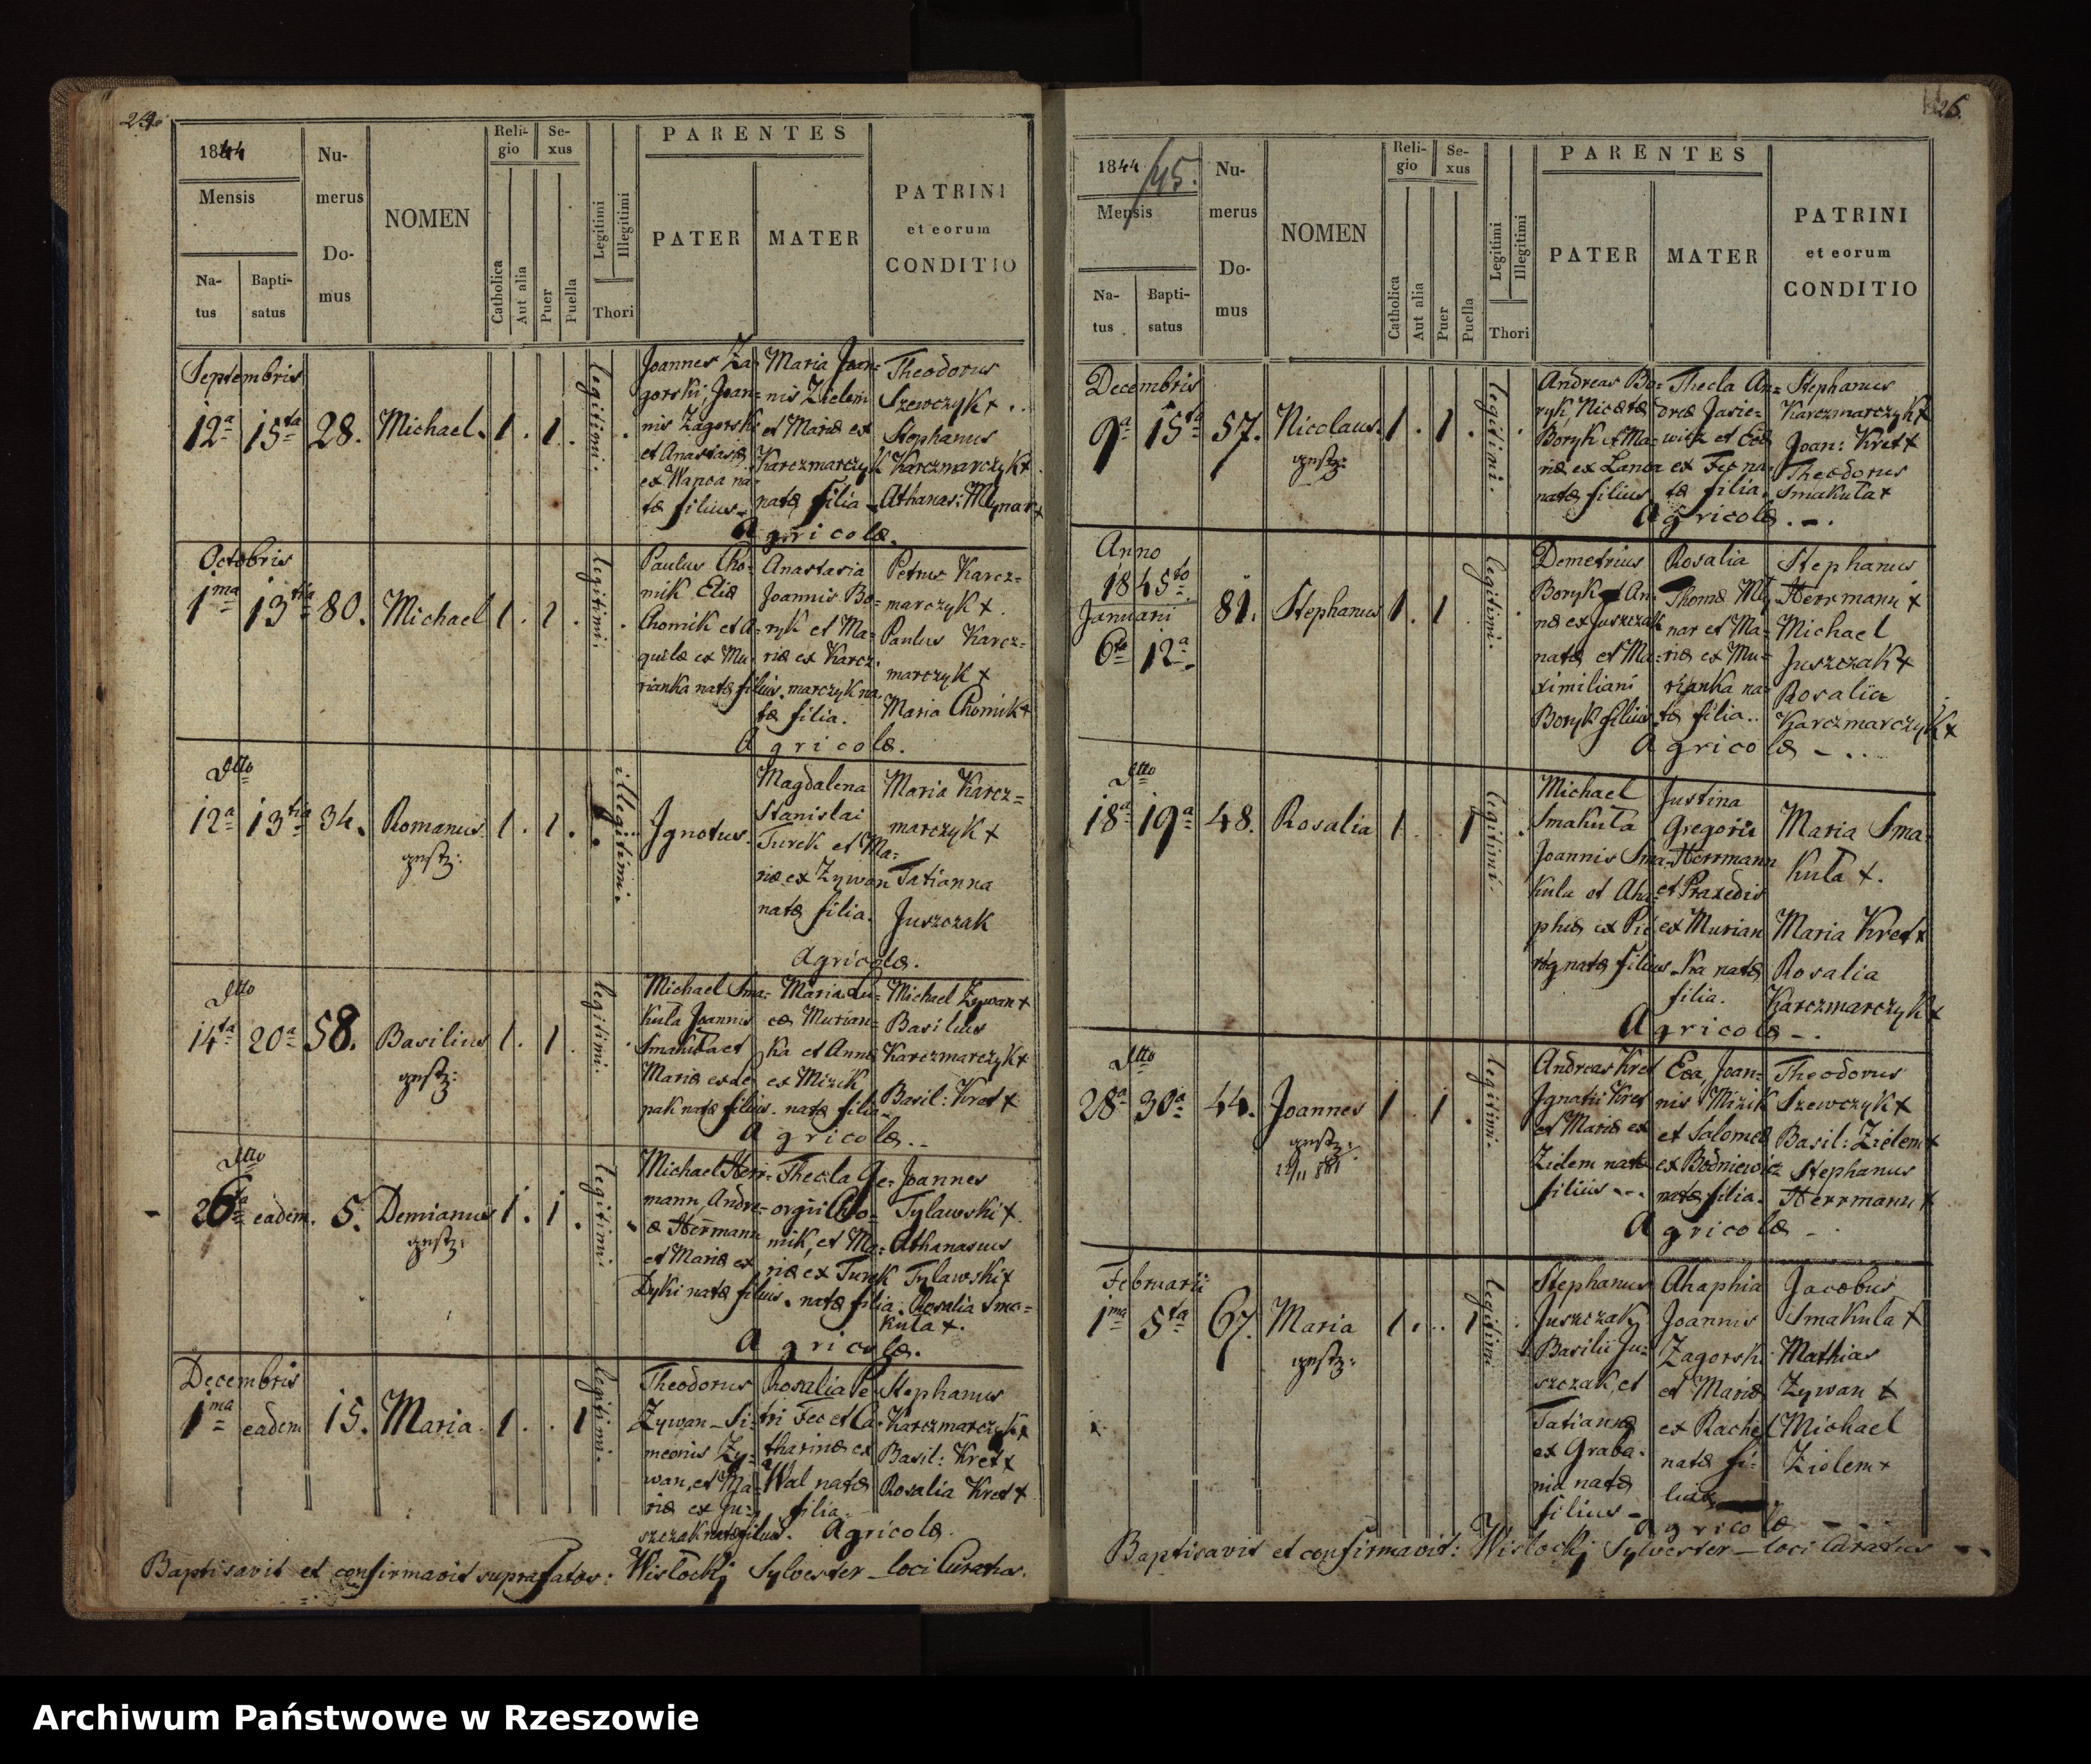 24.
1844
Mensis
Na-
tus
Bapti-
satus
Nu-
merus
Do-
mus
NOMEN
Reli-
gio
Catholica
Aut alia
Se-
xus
Puer
Puella
Legitimi
Illegitimi
Thori
PARENTES
PATER
MATER
PATRINI
et eorum
CONDITIO
Septembris
12a 15ta 28. Michael. 1. 1. legitimi.
Joannes Za-
gorski, Joan=
nis Zagorski
et Anastasiæ
ex Wanca na-
tæ filius -
Maria Joan=
nis Zielem
et Mariæ ex
Karczmarczyk
natæ filia -
Theodorus
Szewczyk +.
Stephanus
Karczmarczyk +
Athanas: Mlynar +
Agricolæ.
Octobris
1ma 13tia 80. Michael 1. 1. legitimi.
Paulus Cho=
mik, Eliæ
Chomik et A-
quilæ ex Mu-
rianka natæ filius.
Anastasia
Joannis Bo=
ryk et Ma=
riæ ex Karcz-
marczyk na-
tæ filia.
Petrus Karcz=
marczyk +.
Paulus Karcz=
marczyk +
Maria Chomik +
Agricolæ.
Dtto
12a 13tia 34. Romanus. 1. 1. illegitimi.
Ignotus.
Magdalena
Stanislai
Turek et Ma=
riæ ex Zywan
natæ filia.
Maria Karcz=
marczyk +
Tatianna
Juszczak
Agricolæ.
Dtto
14ta 20a 58. Basilius 1. 1. legitimi.
Michael Sma=
kuła Joannis
Smakuła et
Mariæ ex Le-
pak natæ filius.
Maria Lu=
cæ Murian=
ka et Annæ
ex Mizik
natæ filia -
Michael Zywan +
Basilius
Karczmarczyk +
Basil: Kret +
Agricolæ.
Dtto
26ta eadem. 5. Demianus 1. 1. legitimi
Michael Herr=
mann, Andre=
æ Herrmann
et Mariæ ex
Dyki natæ filius.
Thecla Ge-
orgii Cho=
mik, et Ma=
riæ ex Turek
natæ filia.
Joannes
Tylawski +.
Athanasius
Tylawski +
Rosalia Sma=
kuła +.
Agricolæ.
Decembris
1ma eadem 15. Maria. 1. 1 legitimi.
Theodorus
Zywan - Si-
meonis Zy-
wan, et Ma-
riæ ex Ju-
szczak natæ filius.
Rosalia Pe-
tri Fec et Ca-
tharinæ ex
Wal natæ
filia.
Stephanus
Karczmarczyk +
Basil: Kret +
Rosalia Kret +
Agricolæ.
Baptisavit et confirmavit suprafatos: Wisłockj Sylvester - loci Curatus.
25.
1844/45.
Mensis
Na-
tus
Bapti-
satus
Nu-
merus
Do-
mus
NOMEN
Reli-
gio
Catholica
Aut alia
Se-
xus
Puer
Puella
Legitimi
Illegitimi
Thori
PARENTES
PATER
MATER
PATRINI
et eorum
CONDITIO
Decembris
9a 15ta 57. Nicolaus. 1. 1. legitimi.
Andreas Bo=
ryk, Nicetæ
Boryk et Ma-
riæ ex Lanca
natæ filius
Thecla An=
dreæ Jasie=
wicz et Evæ
ex Fec na-
tæ filia.
Stephanus
Karczmarczyk +
Joan: Kret +
Theodorus
Smakuła +
Agricolæ. -.
Anno
1845to.
Januarii
6ta 12a. 81. Stephanus 1. 1 legitimi.
Demetrius
Boryk et An-
næ ex Juszczak
natæ et Ma-
ximiliani
Boryk filius.
Rosalia
Thomæ Mły-
nar et Ma=
riæ ex Mu=
rianka na-
tæ filia..
Stephanus
Herrmann +
Michael
Juszczak +
Rosalia
Karczmarczyk +
Agricolæ -..
Dtto
18a 19a 48. Rosalia 1. 1 legitimi.
Michael
Smakuła
Joannis Sma-
kula et Aha-
phiæ ex Pie
róg natæ filius.
Justina
Gregorii
Herrmann
et Praxedis
ex Murian
ka natæ
filia.
Maria Sma-
kuła +.
Maria Kret +
Rosalia
Karczmarczyk +
Agricolæ -.
Dtto
28a 30a 44. Joannes 1. 1. legitimi.
Andreas Kret
Ignatii Kret
et Mariæ ex
Zielem natæ
filius ---
Eva, Joan=
nis Mizik
et Salomeæ
ex Bodniewicz
natæ filia.
Theodorus
Szewczyk +
Basil: Zielem +
Stephanus
Herrmann +
Agricolæ -
Februarii
1ma 5ta 67. Maria 1. 1 legitimi
Stephanus
Juszczak
Basilii Ju=
szczak, et
Tatiannæ
ex Graba-
nia natæ
filius -
Ahaphia
Joannis
Zagorski
et Mariæ
ex Rachel
natæ fi-
Jacobus
Smakuła +
Mathias
Zywan +
Michael
Zielem +
Agricolæ -
Baptisavit et confirmavit: Wisłockj Sylvester - loci Curatus -
Archiwum Państwowe w Rzeszowie